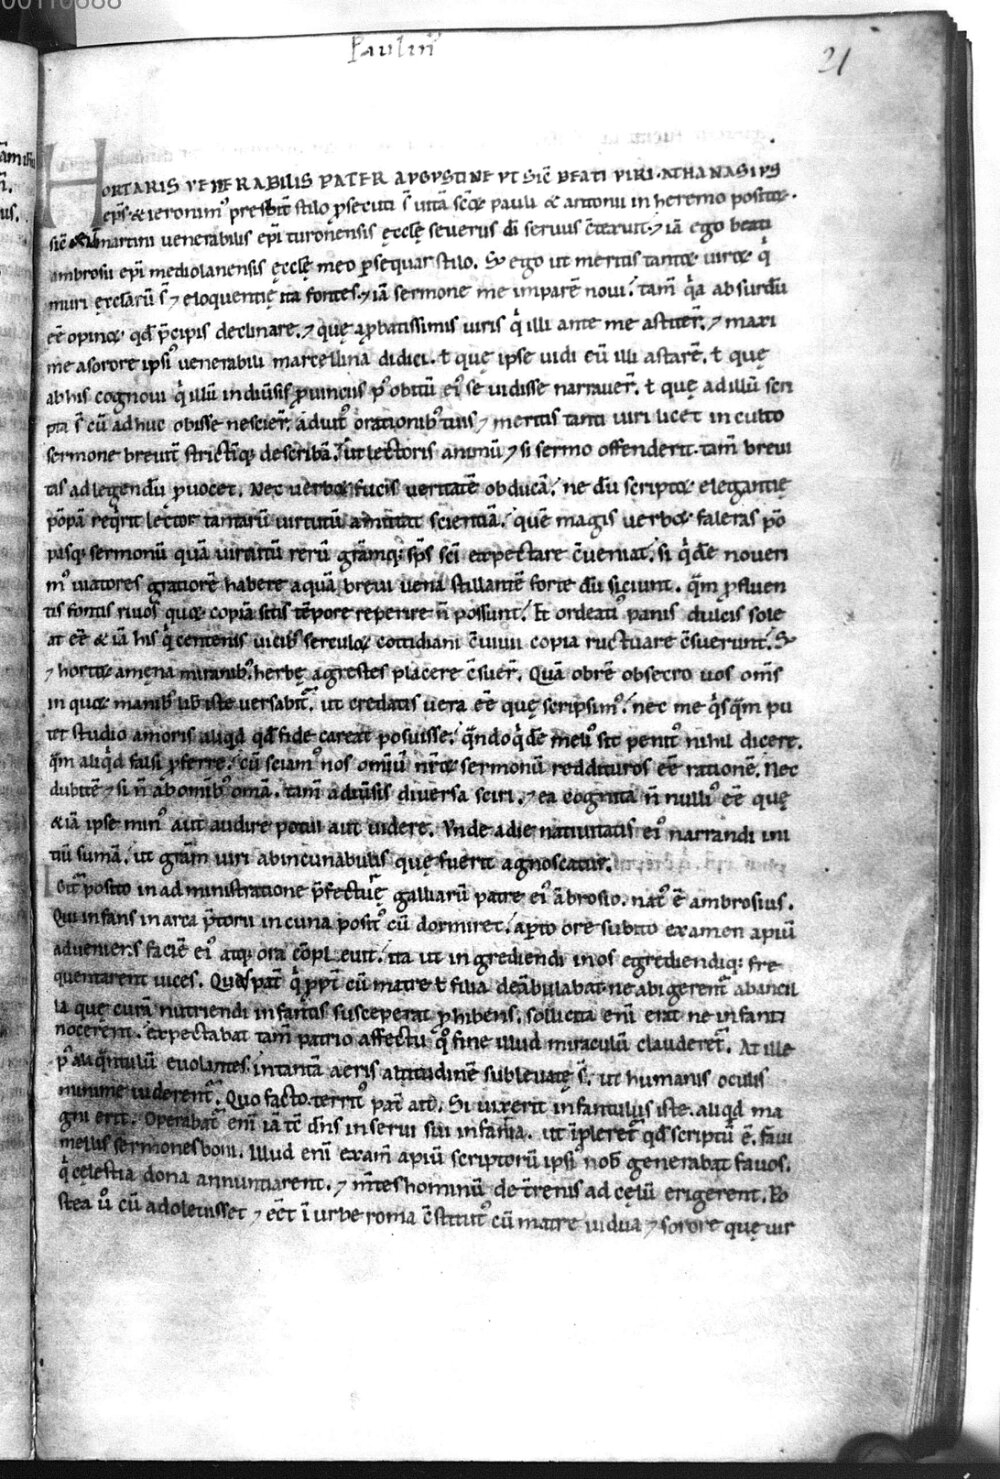 00110688
Paulin᷒
21
HORTARIS VENERABILIS PATER AVGVSTINE VT SIC̄ BEATI VIRI·ATHANASIVS
ep̄s· & ieronim᷒ presbit̄ stilo ꝓsecuti s̄ uitā sc̄oꝝ pauli & antonii in heremo positoꝝ·
sic̄ martini uenerabilis ep̄i turonensis ęccłę seuerus dī seruus c̄texuit·⁊ iā ego beati
ambrosii ep̄i mediolanensis ęccłę meo ꝑsequar stilo. S; ego ut meritis tantoꝝ uiroꝝ qͥ
muri ęccłarū s̄ ⁊ eloquentię ita fontes·⁊ iā sermone me imparē noui. tam̄ qͥa absurdū
eē opinor qd̄ p̄cipis declinare.⁊ quę aꝓbatissimis uiris qͥ illi ante me astiter̄.⁊ maxi
me a sorore ipsi᷒ uenerabili marcellina didici. ł quę ipse uidi cū illi astarē. ł quę
ab his cognoui qͥ illū in diūsis ꝓuinciis p᷒ obitū ei᷒ se uidisse narrauer̄. ł quę ad illū scri
pta s̄ cū adhuc obisse nescier̄. adiut᷒ orationib᷒ tuis ⁊ meritis tanti uiri licet inculto
sermone breuit̄ strictīq; describā. ut lectoris animū ⁊ si sermo offenderit·tam̄ breui
tas ad legendū ꝓuocet. Nec uerboꝝ fucis ueritatē obducā. ne dū scriptor elegantię
pōpā reqͥrit lector tantarū uirtutū amittat scientiā. quē magis uerboꝝ faleras pō
pasq; sermonū quā uirtutū rerū grām̄q; sp̄s scī expectare c̄ueniat. si qͥdē noueri
m᷒ uiatores gratiorē habere aquā breui uena stillantē forte dū siciunt. qͣm ꝓfluen
tis fontis riuos quoꝝ copiā sitis tēpore reperire n̄ possunt. Et ordeati᷒ panis dulcis sole
at eē & iā his qͥ centenis uicib᷒ ferculoꝝ cottidiani c̄uiuii copia ructuare c̄suerunt. S;
⁊ hortoꝝ amęna mirantib᷒. herbę agrestes placere c̄suer̄. Quā obrē obsecro uos om̄s
in quoꝝ manib᷒ lib̄ iste uersabit̄. ut credatis uera eē quę scripsim᷒. nec me qͥsqͣm pu
tet studio amoris aliqd̄ qd̄ fide careat posuisse. qͣndo qͥdē meli᷒ sit penit᷒ nihil dicere.
qͣm aliqͥd falsi ꝓferre. cū sciam᷒ nos omiū nr̄oꝝ sermonū reddituros eē rationē. Nec
dubitē ⁊ si n̄ ab omib᷒ omā. tam̄ a diūsis diuersa sciri.⁊ ea cognita n̄ nulli᷒ eē quę
& iā ipse min᷒ aut audire potui aut uidere. Vnde a die natiuitatis ei᷒ narrandi ini
tiū sumā. ut grām uiri ab incunabulis quę fuerit agnoscatur.
Igit̄ posito in administratione p̄fecturę galliarū patre ei᷒ ābrosio. nat᷒ ē ambrosius.
Qui infans in area p̄torii in cuna posit᷒ cū dormiret. aꝑto ore subito examen apiū
adueniens faciē ei᷒ atq; ora cōpleuit. ita ut ingrediendi in os egrediendiq; fre
quentarent uices. Quas pat̄ qͥ ꝓpt̄ cū matre ł filia deābulabat·ne abigerent̄ ab ancil
la quę curā nutriendi infantis susceperat ꝓhibens. sollicita eni̅ erat ne infanti
nocerent. expectabat tam̄ patrio affectu qͦ fine illud miraculū clauderet̄. At ille
p᷒ aliqͣntulū euolantes. in tantā aeris altitudinē subleuate s̄. ut humanis oculis
minime uiderent̄. Quo facto·territ᷒ pat̄ ait. Si uixerit infantulus iste. aliqd̄ ma
gni erit. Operabat̄ eni̅ iā tc̄ dn̄s in serui sui infantia. ut īpleret̄ qd̄ scriptū ē. faui
mellis sermones boni. Illud eni̅ exam̄ apiū scriptorū ipsi᷒ nob᷒ generabat fauos.
qͥ cęlestia dona annuntiarent. ⁊ m̄tes hominū de t̄renis ad cęlū erigerent. Po
stea ūo cū adoleuisset ⁊ eēt ī urbe roma c̄stitut᷒ cū matre uidua ⁊ sorore quę uir